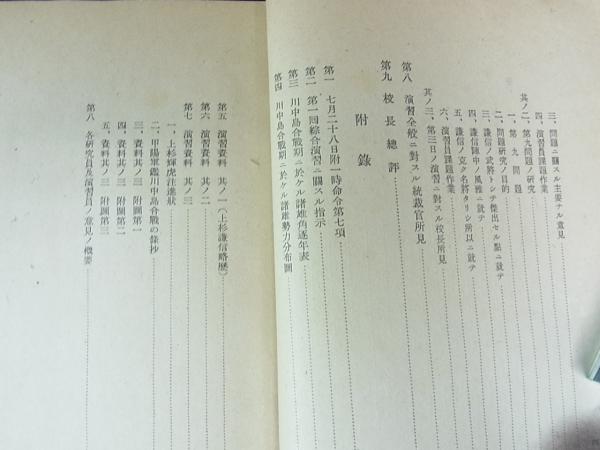 三、問題ニ關スル主要ナル意見
四、演習員課題作業
其ノ二、第九問題ノ研究
一、第九問題
二、問題研究ノ目的
三、謙信ノ武將トシテ傑出セル點ニ就テ
四、謙信陣中ノ風雅ニ就テ
五、謙信ノ克ク名將タリシ所以ニ就テ
六、演習員課題作業
其ノ三、第三日ノ演習ニ對スル校長所見
第八 演習全般ニ對スル統裁官所見
第九 校長總評
附錄
第一 七月二十八日附一時命令第七項
第二 第一回綜合演習ニ關スル指示
第三 川中島合戰期ニ於ケル諸雄角逐年表
第四 川中島合戰期ニ於ケル諸雄勢力分布圖
第五 演習資料 其ノ一(上杉謙信略歷)
第六 演習資料 其ノ二
第七 演習資料 其ノ三
一、上杉輝虎注進狀
二、甲陽軍鑑川中島合戰の條抄
三、資料其ノ三 附圖第一
四、資料其ノ三 附圖第二
五、資料其ノ三 附圖第三
第八 各研究員及演習員ノ意見ノ概要